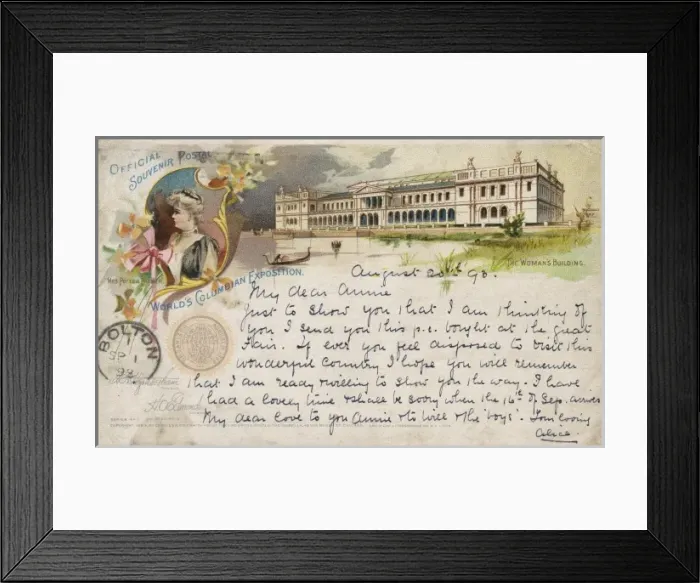 OFFICIAL
SOUVENIR POSTAL
WORLD'S COLUMBIAN EXPOSITION.
THE WOMAN'S BUILDING.
BOLTON
SP 1
93
August 20th 93.
My dear Annie
Just to show you that I am thinking of
you I send you this p.c. bought at the great
Fair. If ever you feel disposed to visit this
wonderful country I hope you will remember
that I am ready & willing to show you the way. I have
had a lovely time & shall be sorry when the 16th of Sep. arrives
My dear love to you Annie & to Will & the "boys". Your loving
Alice.